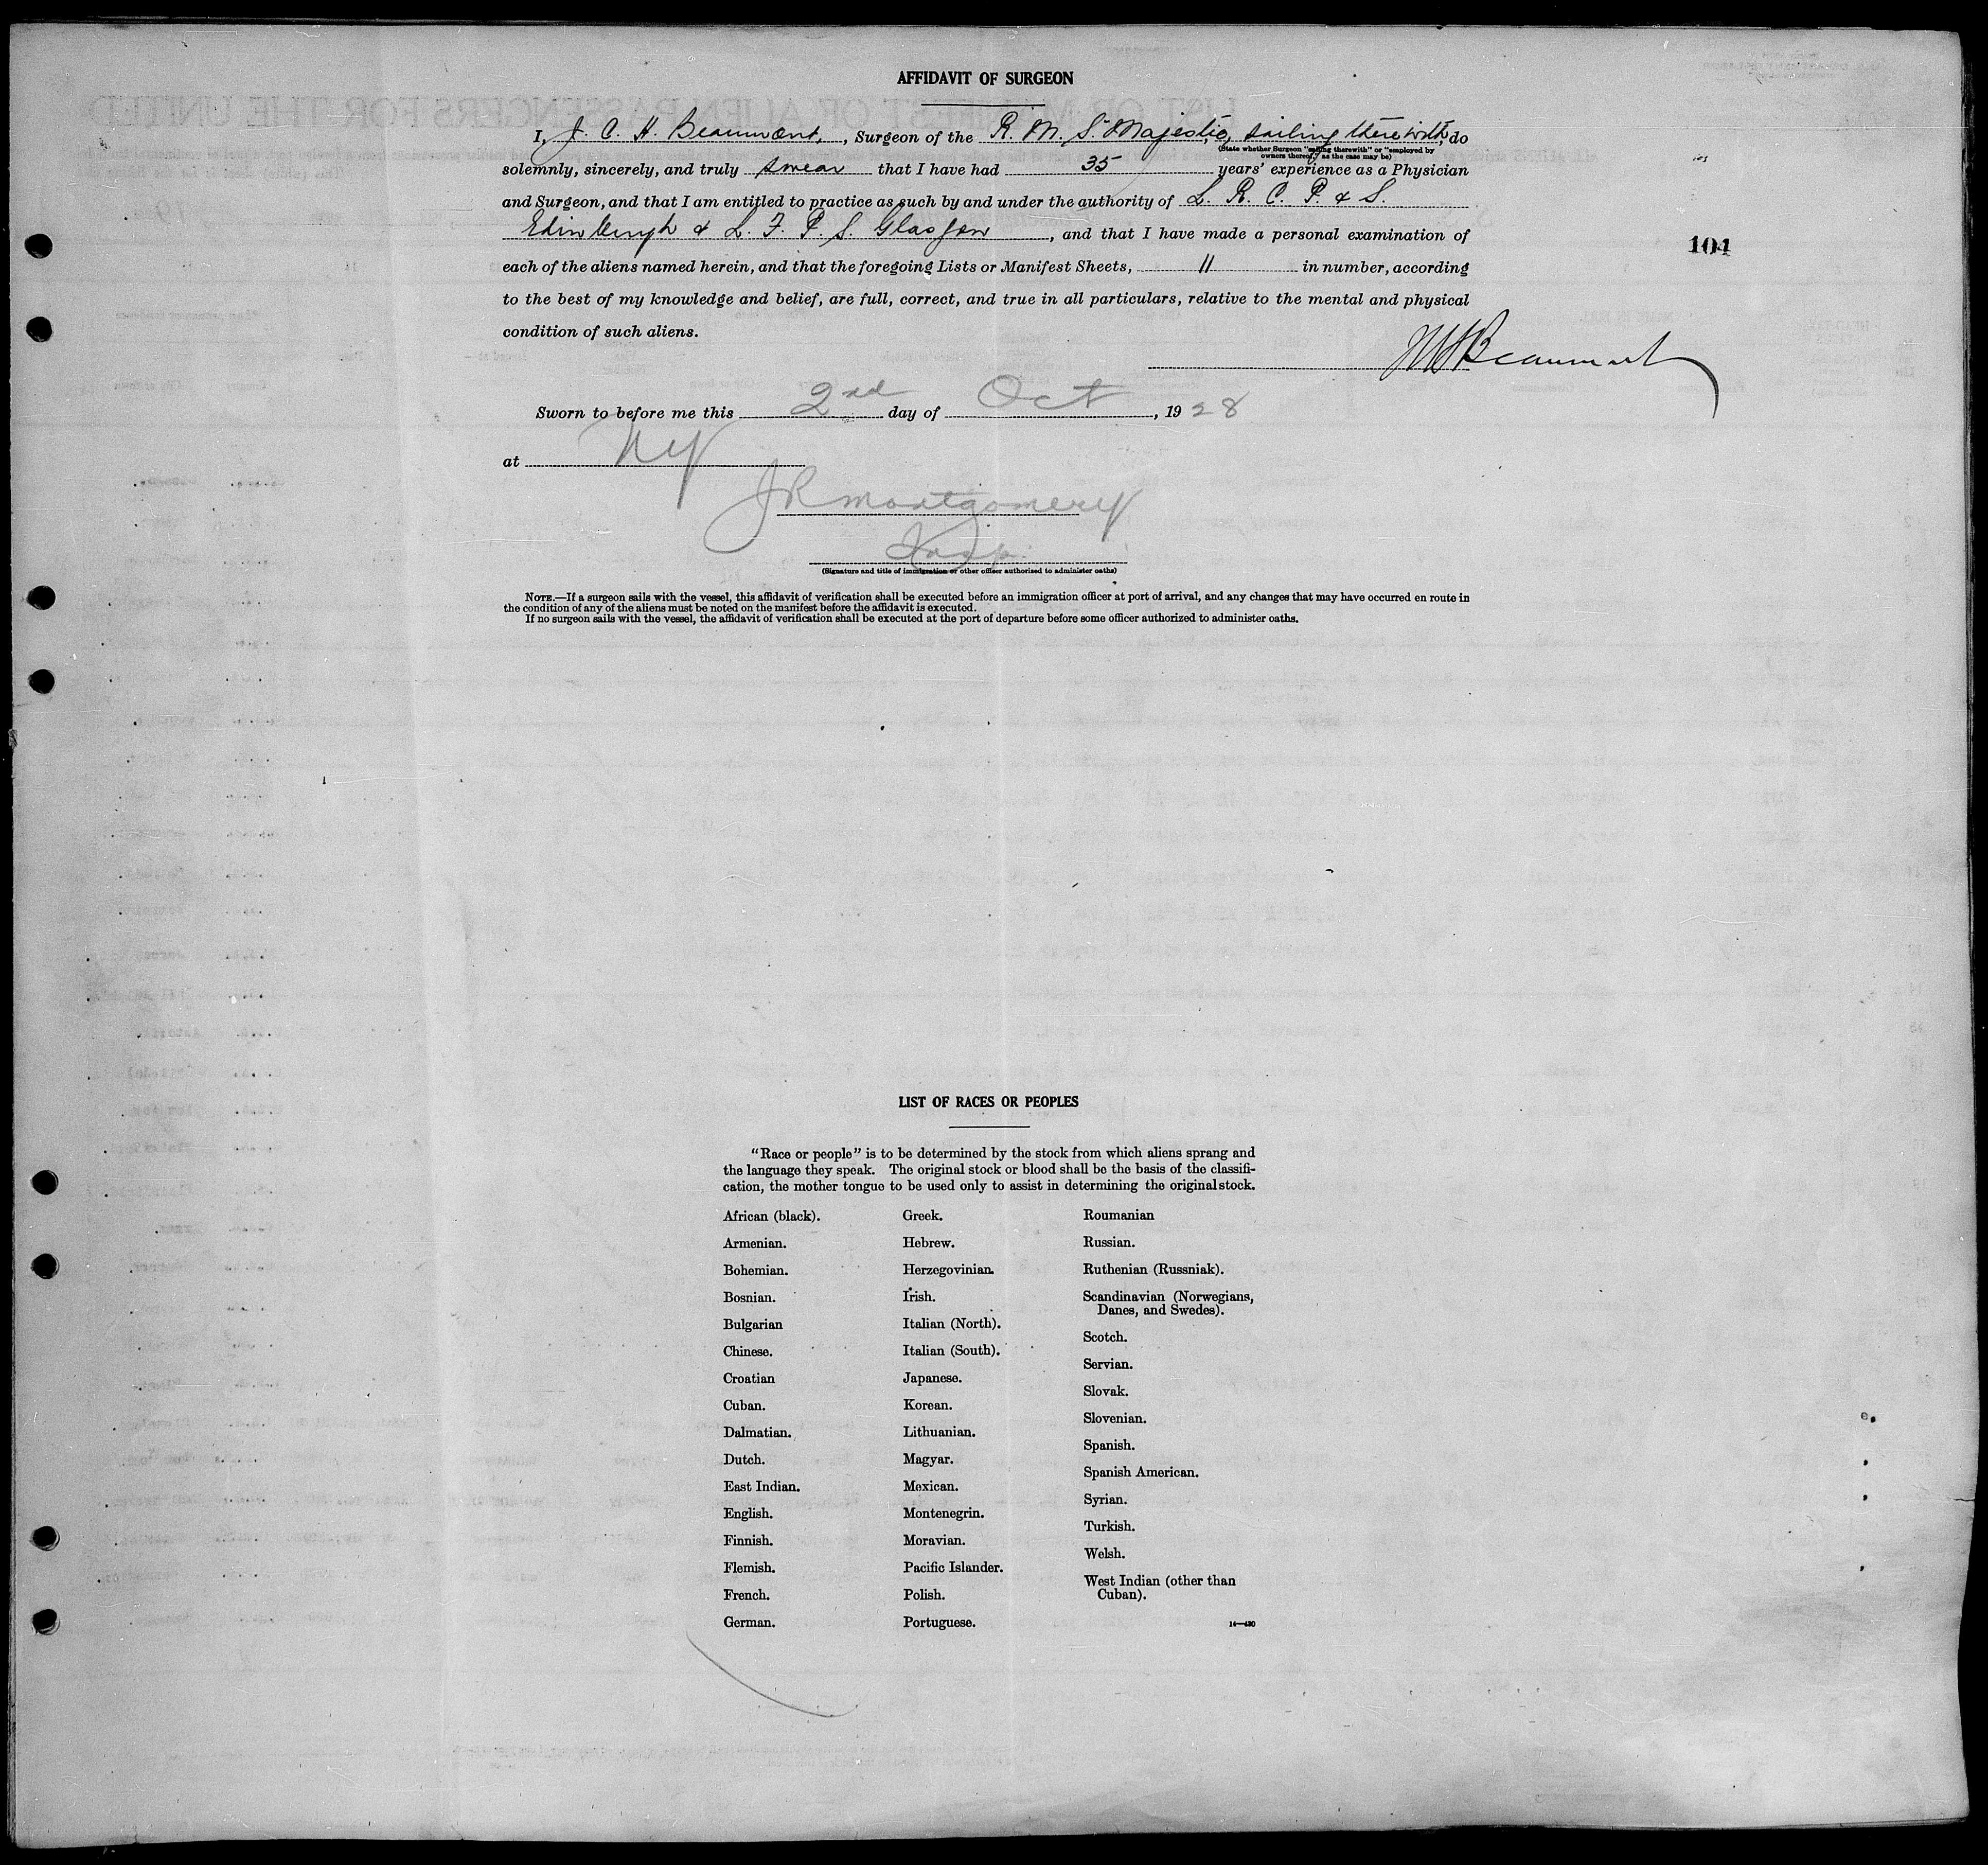 AFFIDAVIT OF SURGEON
I, J. C. H. Beaumont, , Surgeon of the R. M. S. Majestic, sailing therewith, do
(State whether Surgeon "sailing therewith" or "employed by
owners thereof," as the case may be)
solemnly, sincerely, and truly swear that I have had 35 years' experience as a Physician
and Surgeon, and that I am entitled to practice as such by and under the authority of L. R. C. P. & S.
Edinburgh & L. F. P. S. Glasgow, and that I have made a personal examination of
each of the aliens named herein, and that the foregoing Lists or Manifest Sheets, 11 in number, according
to the best of my knowledge and belief, are full, correct, and true in all particulars, relative to the mental and physical
condition of such aliens.
104
Beaumont
Sworn to before me this 2nd day of Oct, 1928
at NY
JR Montgomery
Insp.
(Signature and title of immigration or other officer authorized to administer oaths)
NOTE.—If a surgeon sails with the vessel, this affidavit of verification shall be executed before an immigration officer at port of arrival, and any changes that may have occurred en route in
the condition of any of the aliens must be noted on the manifest before the affidavit is executed.
If no surgeon sails with the vessel, the affidavit of verification shall be executed at the port of departure before some officer authorized to administer oaths.
LIST OF RACES OR PEOPLES
"Race or people" is to be determined by the stock from which aliens sprang and
the language they speak. The original stock or blood shall be the basis of the classifi-
cation, the mother tongue to be used only to assist in determining the original stock.
African (black).
Armenian.
Bohemian.
Bosnian.
Bulgarian
Chinese.
Croatian
Cuban.
Dalmatian.
Dutch.
East Indian.
English.
Finnish.
Flemish.
French.
German.
Greek.
Hebrew.
Herzegovinian.
Irish.
Italian (North).
Italian (South).
Japanese.
Korean.
Lithuanian.
Magyar.
Mexican.
Montenegrin.
Moravian.
Pacific Islander.
Polish.
Portuguese.
Roumanian
Russian.
Ruthenian (Russniak).
Scandinavian (Norwegians,
Danes, and Swedes).
Scotch.
Servian.
Slovak.
Slovenian.
Spanish.
Spanish American.
Syrian.
Turkish.
Welsh.
West Indian (other than
Cuban).
14—430